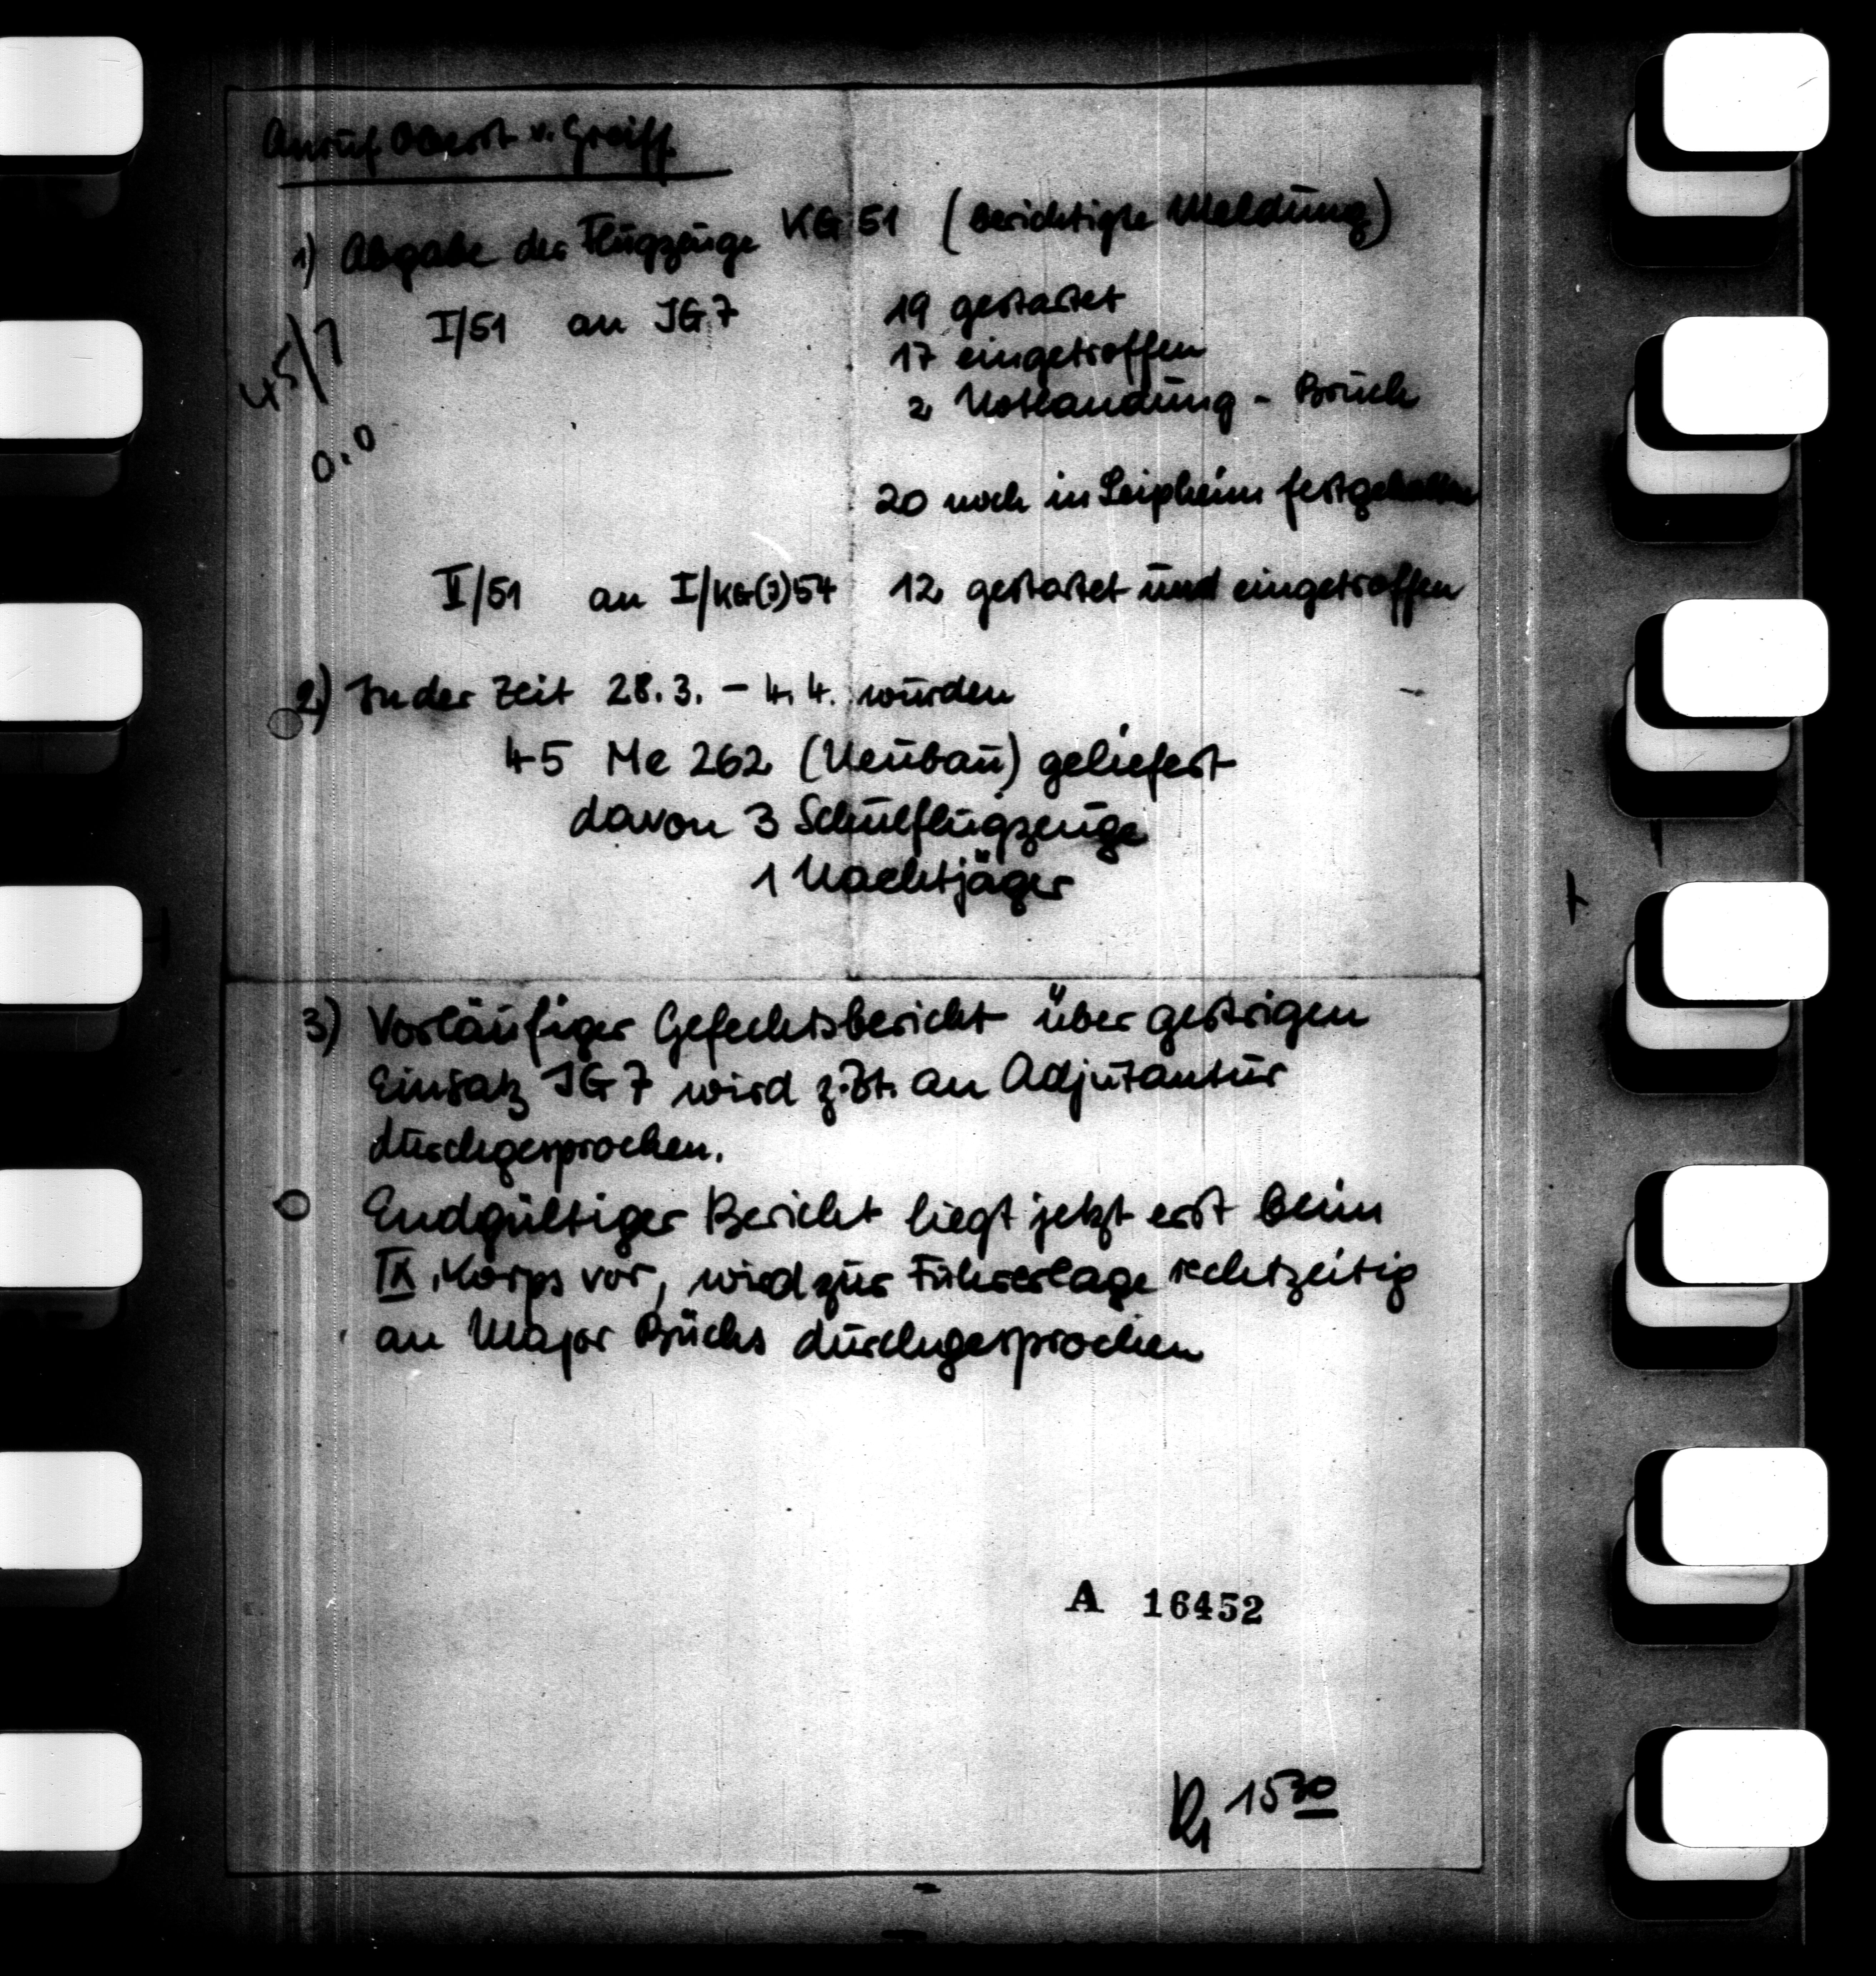 Anruf Oberst v. Greiff.
1) Abgabe der Flugzeuge KG 51 (berichtigte Meldung)
I/51 an JG 7 19 gestartet
17 eingetroffen
2 Notlandung - Bruch
20 noch in Leipheim festgehalten
II/51 an I/KG(J)54 12 gestartet und eingetroffen
2) In der Zeit 28.3. - 4.4. wurden
45 Me 262 (Neubau) geliefert
davon 3 Schulflugzeuge
1 Nachtjäger
3) Vorläufiger Gefechtsbericht über gestrigen
Einsatz JG 7 wird z.Zt. an Adjutantur
durchgesprochen.
Endgültiger Bericht liegt jetzt erst beim
IX. Korps vor, wird zur Führerlage rechtzeitig
an Major Büchs durchgesprochen
A 16452
15 30